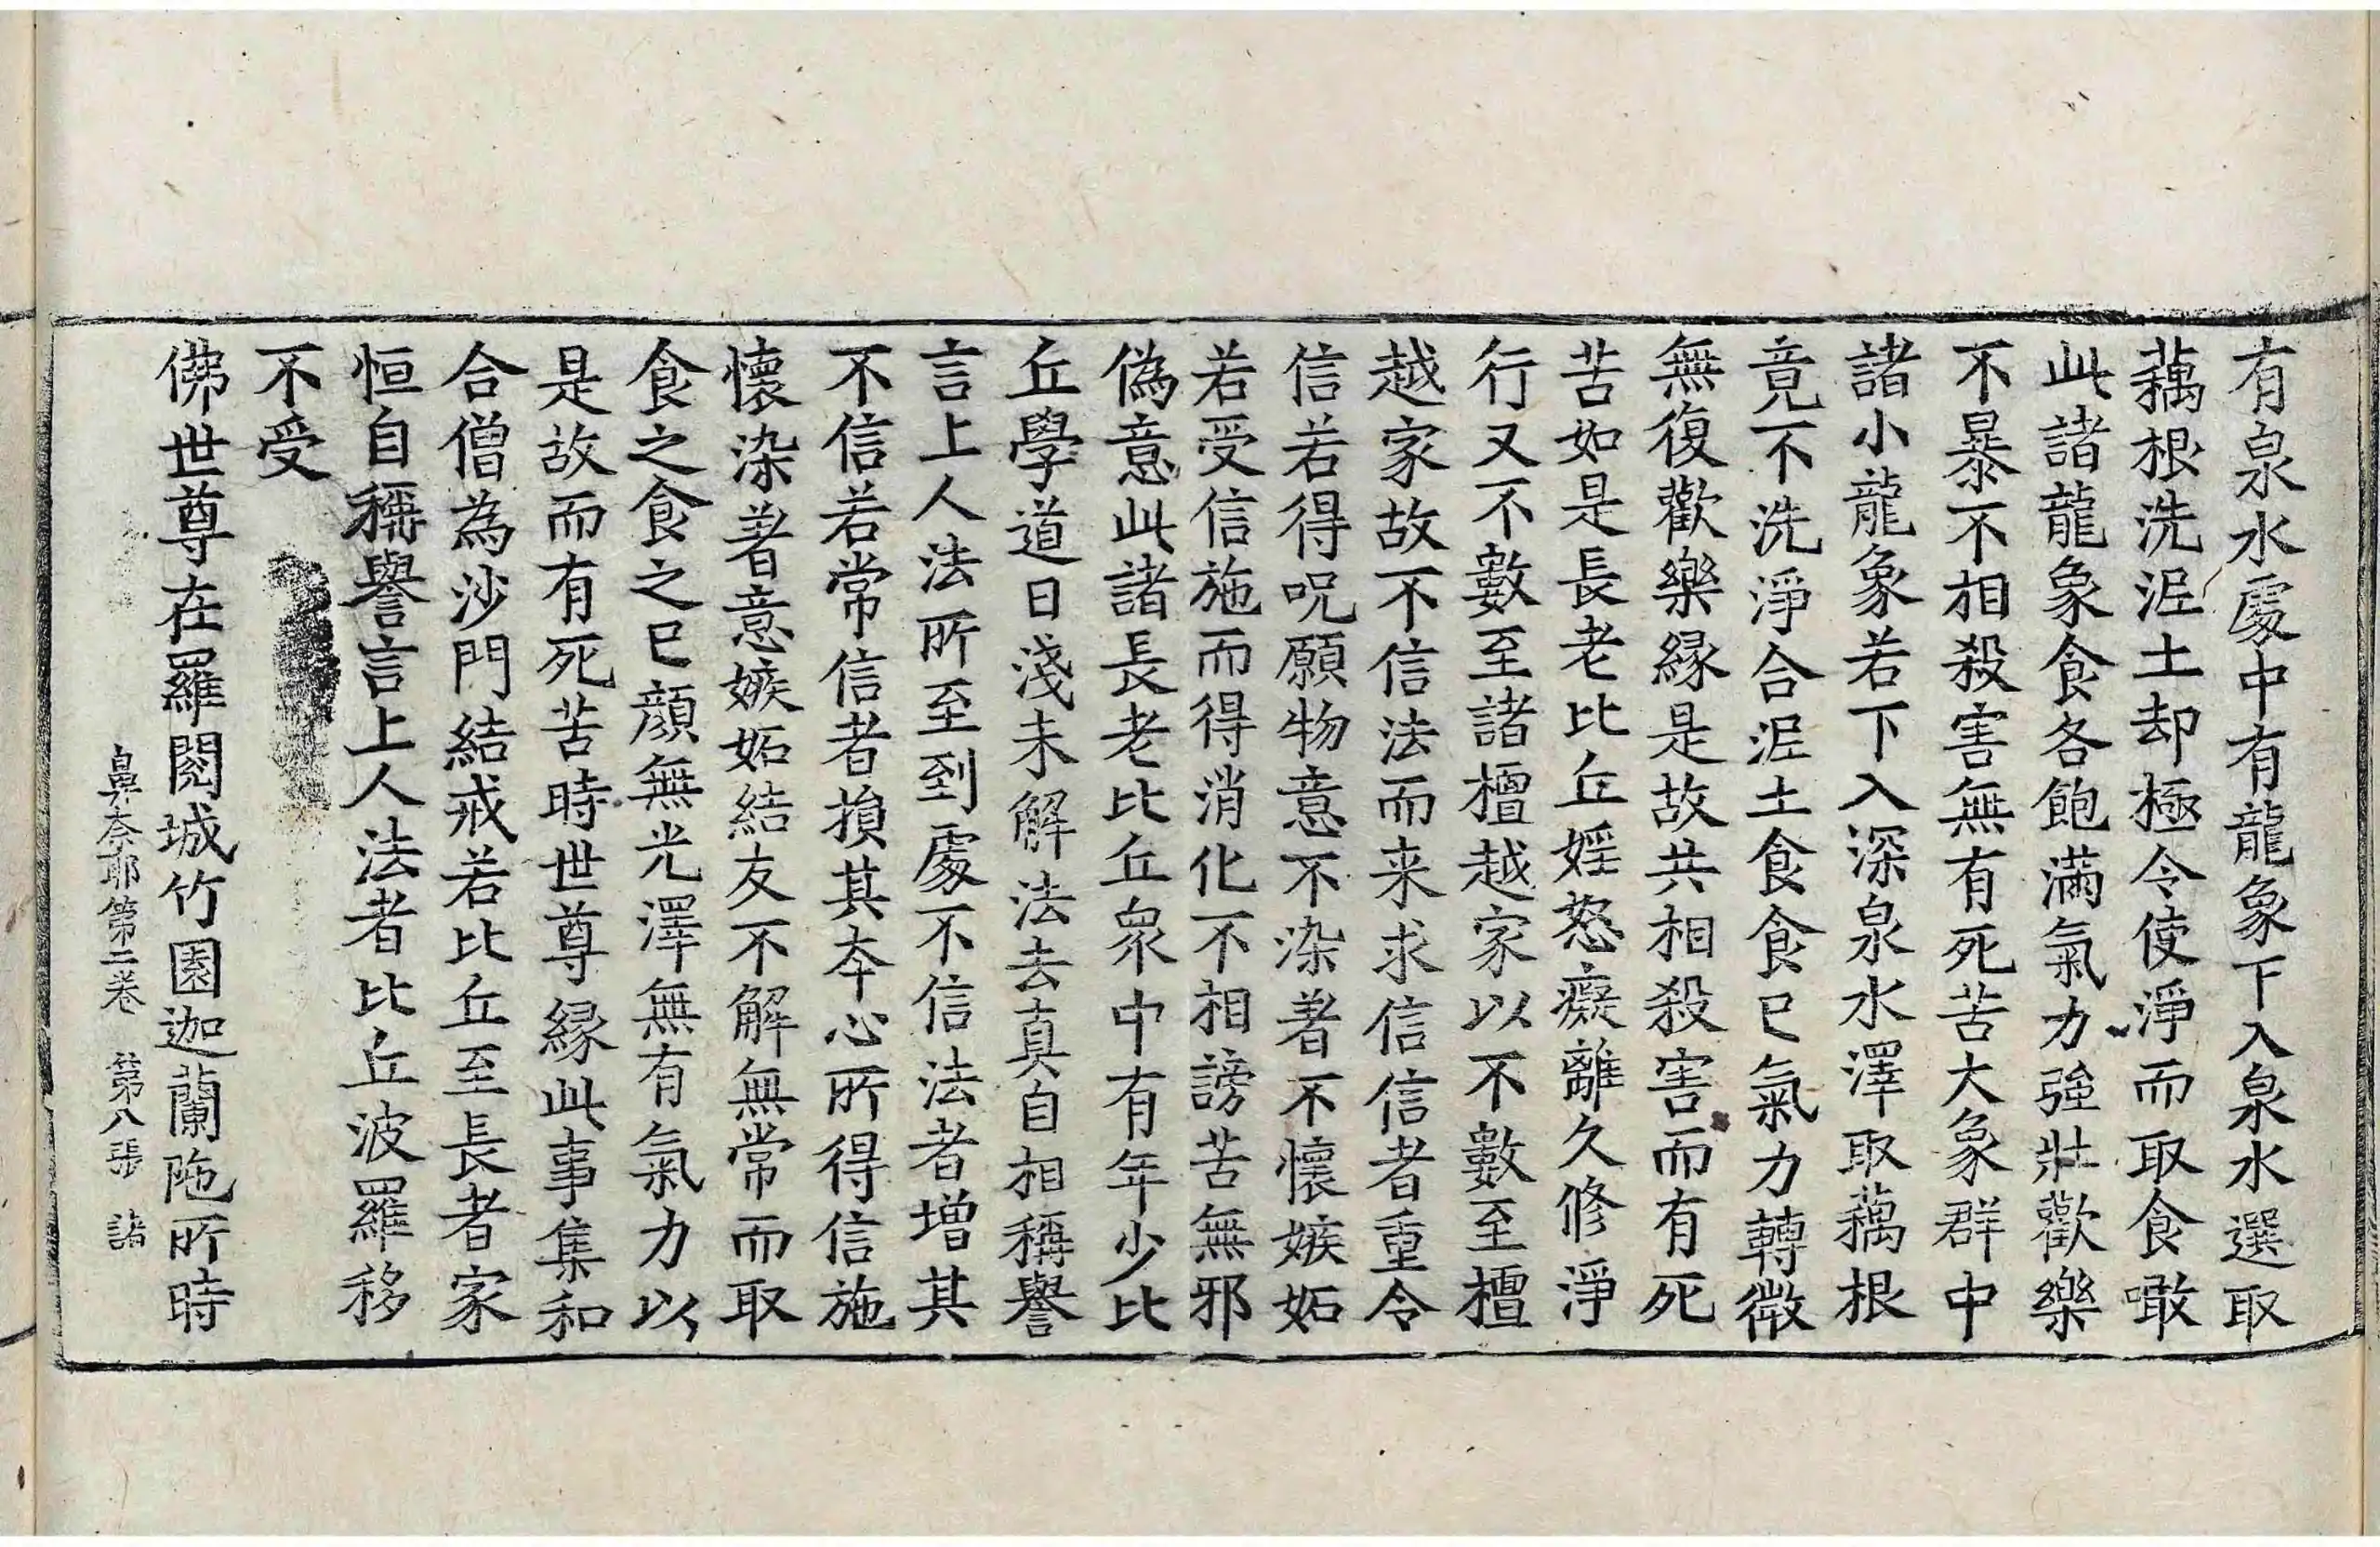 有泉水處中有龍象下入泉水選取
藕根洗泥土却極令使淨而取食噉
此諸龍象食各飽滿氣力強壯歡樂
不暴不相殺害無有死苦大象群中
諸小龍象若下入深泉水澤取藕根
竟不洗淨合泥土食食已氣力轉微
無復歡樂緣是故共相殺害而有死
苦如是長老比丘婬怒癡離久修淨
行又不數至諸檀越家以不數至檀
越家故不信法而来求信信者重令
信若得呪願物意不染著不懷嫉妬
若受信施而得消化不相謗苦無邪
偽意此諸長老比丘衆中有年少比
丘學道日淺未解法去真自相稱譽
言上人法所至到處不信法者增其
不信若常信者損其本心所得信施
懷染著意嫉妬結友不解無常而取
食之食之已顔無光澤無有氣力以
是故而有死苦時世尊緣此事集和
合僧為沙門結戒若比丘至長者家
恒自稱譽言上人法者比丘波羅移
不受
佛世尊在羅閱城竹園迦蘭陁所時
鼻奈耶第二卷 第八張 諸